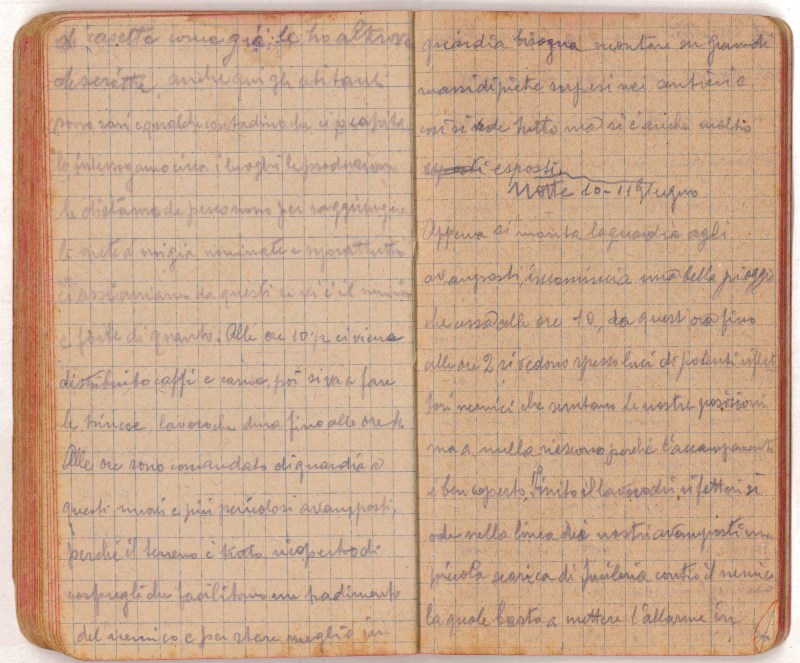 casette come già le ho altrove
descritte, anche qui gli abitanti
sono rari e qualche contadino che ci capita
lo interrogamo circa i luoghi le produzioni
le distanze che percorrono per raggiungere
le mete a noi già nominate e soprattutto
ci assicuriamo da questi se vi è il nemico
e forte di quanto. Alle ore 10 1/2 ci viene
distribuito caffi e carne, poi si va a fare
le trincee lavoro che dura fino alle ore
Alle ore sono comandato di guardia a
questi nuovi e più pericolosi avamposti,
perché il terreno è tutto ricoperto di
cespugli che facilitano un tradimento
del nemico e per stare meglio in
guardia bisogna montare su grandi
massi di pietre sorpesi nei sentieri e
così si vede tutto, ma si è anche molto
esposti
Notte 10-11 Giugno
Appena si monta la guardia agli
avamposti, incomincia una bella pioggia
che cessa alle ore 10, da quest'ora fino
alle ore 2 si vedono spesso luci di potenti riflet
tori nemici che scrutano le nostre posizioni
ma a nulla riescono perché l'accampamento
e ben coperto. Finito il lavoro dei riflettori si
ode nella linea dei nostri avamposti una
piccola scarica di fucileria contro il nemico
la quale basta a mettere l'allarme in